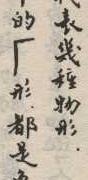 表幾種物形.
的厂形.都是